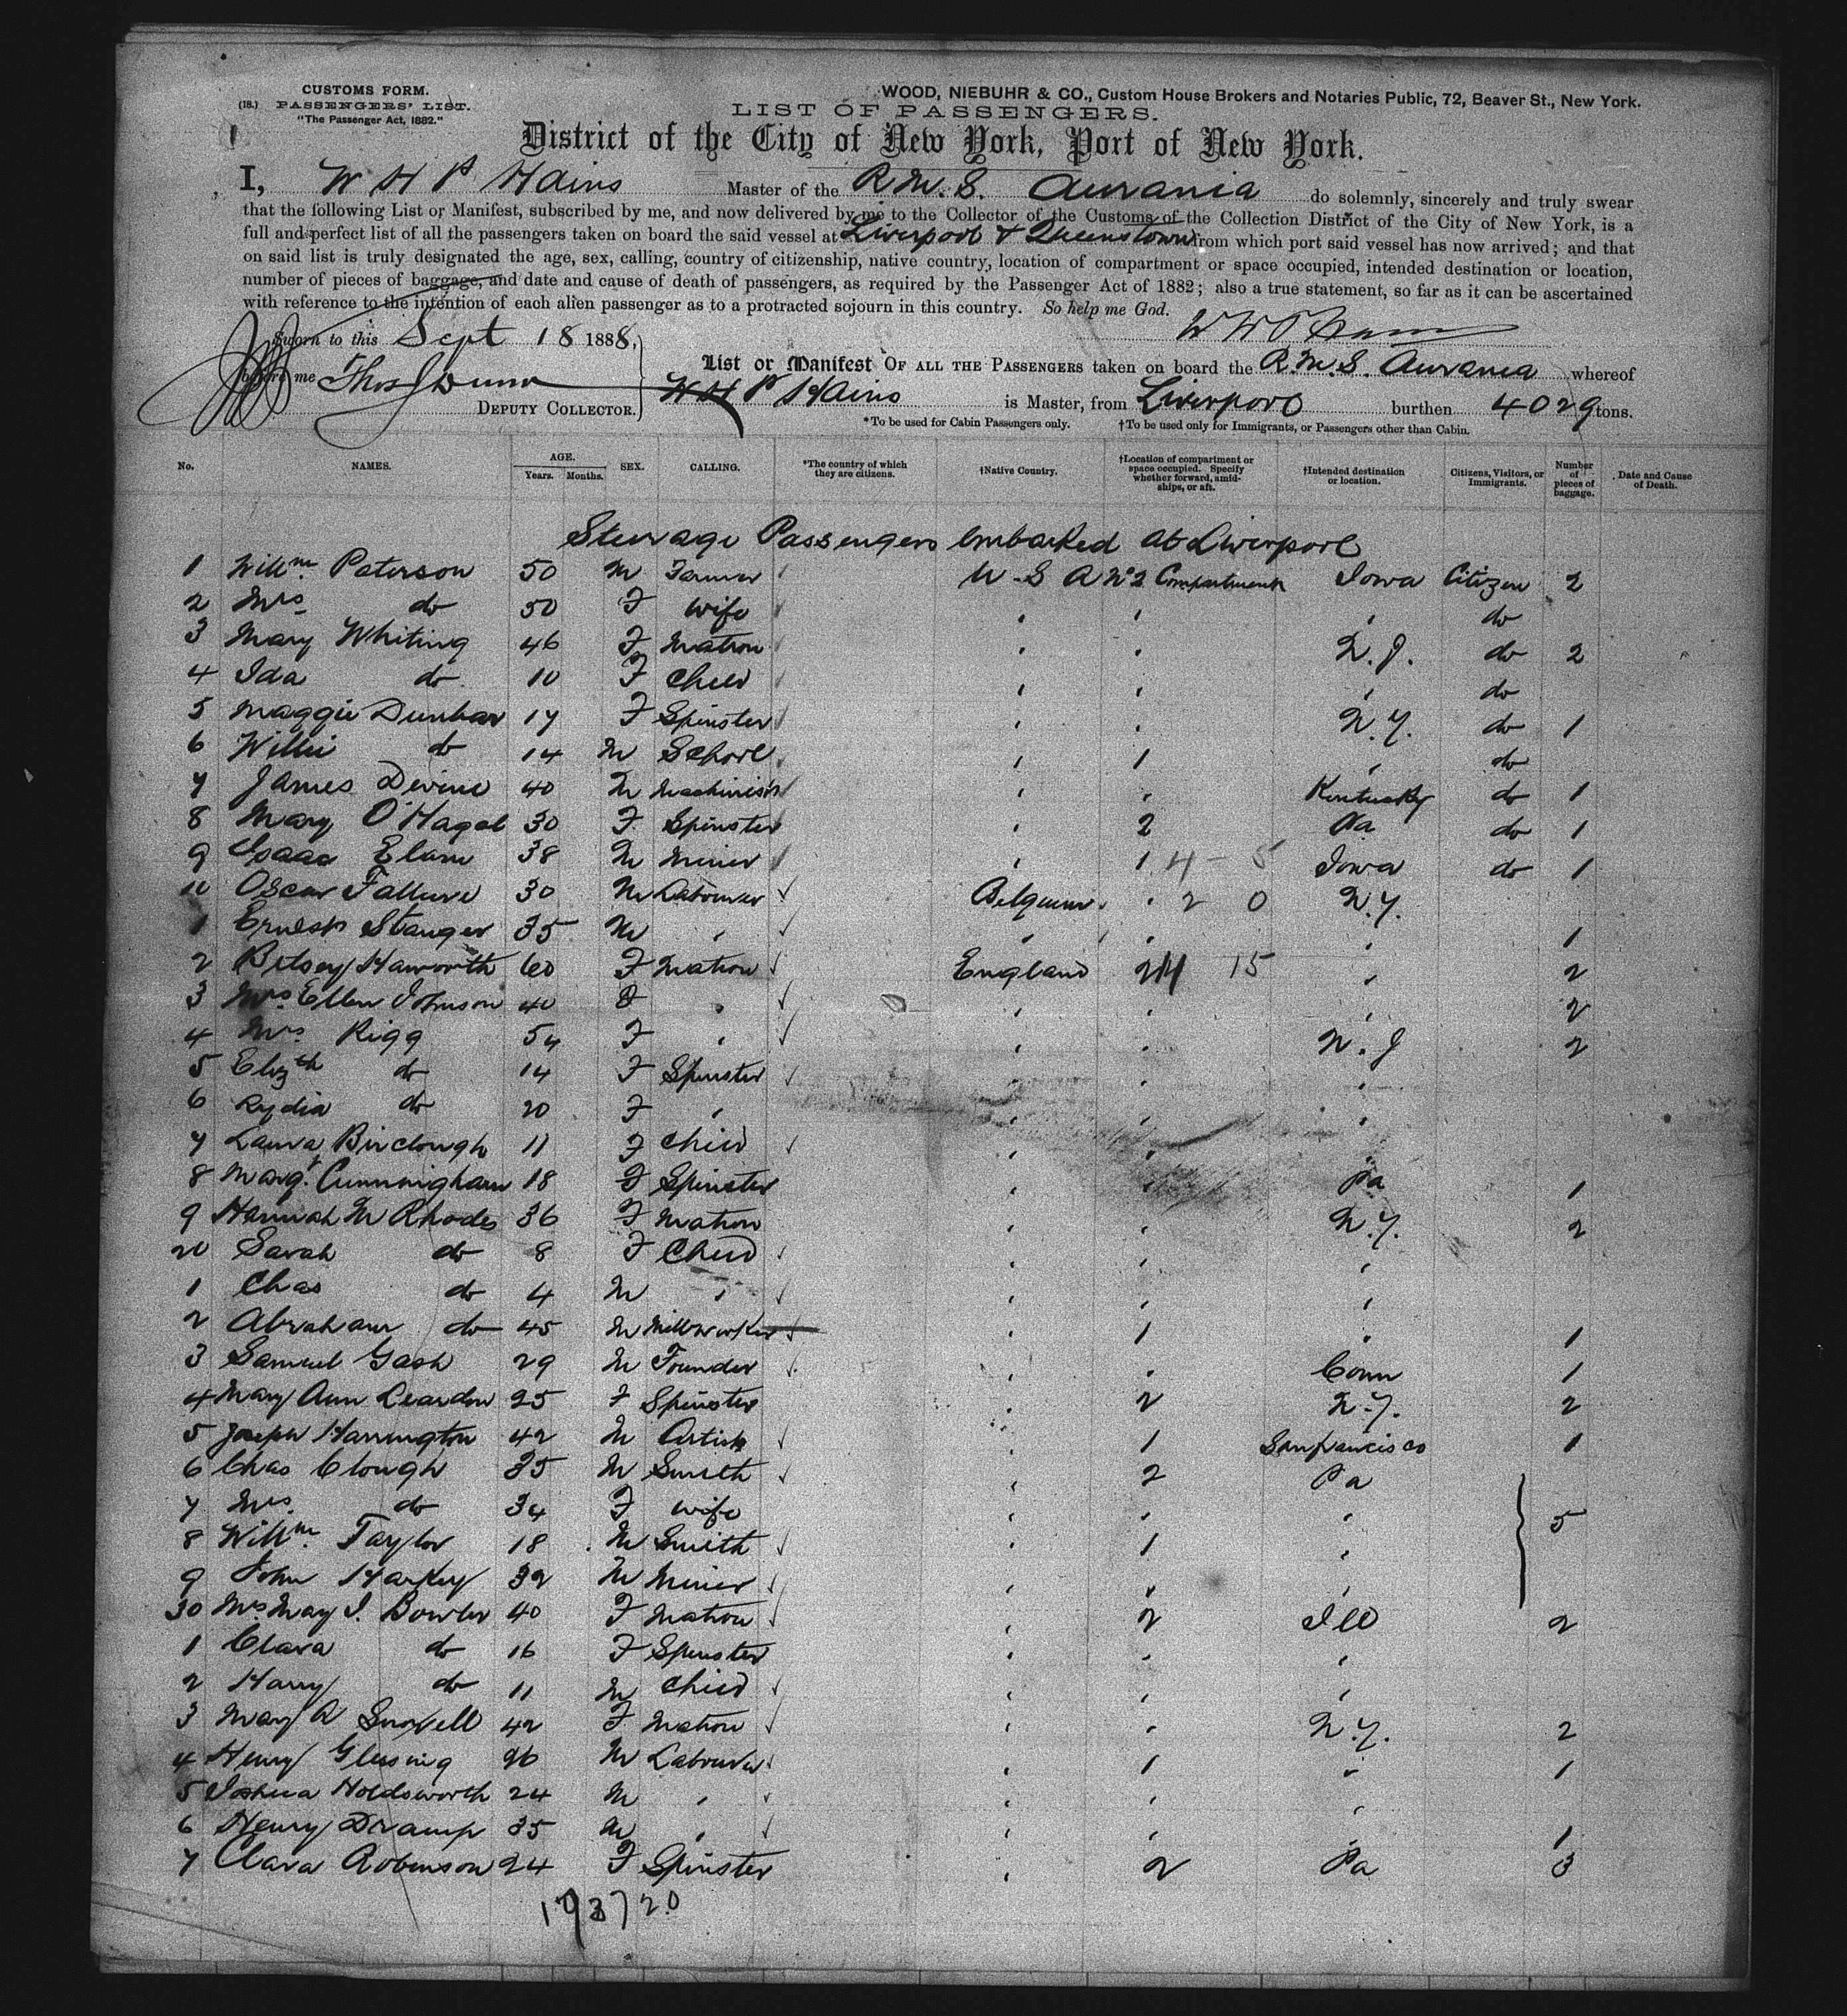 CUSTOMS FORM.
(18.) PASSENGERS' LIST.
"The Passenger Act, 1882."
WOOD, NIEBUHR & CO., Custom House Brokers and Notaries Public, 72, Beaver St., New York.
LIST OF PASSENGERS.
District of the City of New York, Port of New York.
I, W H P Hains Master of the R.M.S. Aurania do solemnly, sincerely and truly swear
that the following List or Manifest, subscribed by me, and now delivered by me to the Collector of the Customs of the Collection District of the City of New York, is a
full and perfect list of all the passengers taken on board the said vessel at Liverpool & Queenstown from which port said vessel has now arrived; and that
on said list is truly designated the age, sex, calling, country of citizenship, native country, location of compartment or space occupied, intended destination or location,
number of pieces of baggage, and date and cause of death of passengers, as required by the Passenger Act of 1882; also a true statement, so far as it can be ascertained
with reference to the intention of each alien passenger as to a protracted sojourn in this country. So help me God.
Sworn to this Sept 18 1888,
W H P Hains
before me Thos J Dunn
DEPUTY COLLECTOR.
List or Manifest OF ALL THE PASSENGERS taken on board the R.M.S. Aurania whereof
W H P Hains is Master, from Liverpool burthen 4029 tons.
*To be used for Cabin Passengers only. †To be used only for Immigrants, or Passengers other than Cabin.
No. NAMES. AGE. Years. Months. SEX. CALLING. *The country of which they are citizens. †Native Country. †Location of compartment or space occupied. Specify whether forward, amidships, or aft. †Intended destination or location. Citizens, Visitors, or Immigrants. Number of pieces of baggage. Date and Cause of Death.
Steerage Passengers embarked at Liverpool
1 Willm Paterson 50 M Farmer U.S.A No 2 Compartment Iowa Citizen 2
2 Mrs do 50 F Wife do
3 Mary Whiting 46 F Matron N.J. do 2
4 Ida do 10 F Child do
5 Maggie Dunbar 17 F Spinster N.Y. do 1
6 Willie do 14 M School 1 do
7 James Devine 40 M Machinist Kentucky do 1
8 Mary O'Hagal 30 F Spinster 2 Pa do 1
9 Isaac Elam 38 M Miner 1 4 - 5 Iowa do 1
10 Oscar 30 M Labourer Belgium 2 0 N.Y.
1 Ernest Stanger 35 M 1
2 Betsey Haworth 60 F Matron England 2 15 2
3 Mrs Ellen Johnson 40 F 2
4 Mrs Rigg 54 F N.J 2
5 Elizth do 14 F Spinster
6 Lydia do 20 F
7 Laura Birclough 11 F Child
8 Margt Cunningham 18 F Spinster Pa 1
9 Hannah M Rhodes 36 F Matron N.Y. 2
20 Sarah do 8 F Child
1 Chas do 4 M
2 Abraham do 45 M Millworker 1 1
3 Samuel Gash 29 M Founder Conn 1
4 Mary Ann Reardon 25 F Spinster 2 N.Y. 2
5 Joseph Harrington 42 M Artist 1 San francisco 1
6 Chas Clough 35 M Smith 2 Pa
7 Mrs do 34 F Wife 5
8 Willm Taylor 18 M Smith 1
9 John Harkey 32 M Miner
30 Mrs May J. Bowler 40 F Matron 2 Ill 2
1 Clara do 16 F Spinster
2 Harry do 11 M Child
3 Mary A 42 F Matron N.Y. 2
4 Henry Glessing 26 M Labourer 1 1
5 Joshua Holdsworth 24 M
6 Henry Dramp 35 M 1
7 Clara Robinson 24 F Spinster 2 Pa 3